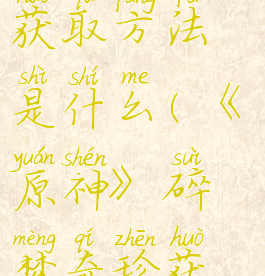 huò qǔ fāng fǎ
获取方法
shì shí me
是什么(《
yuán shén suì
原神》碎
mèng qí zhēn huò
梦奇珍获